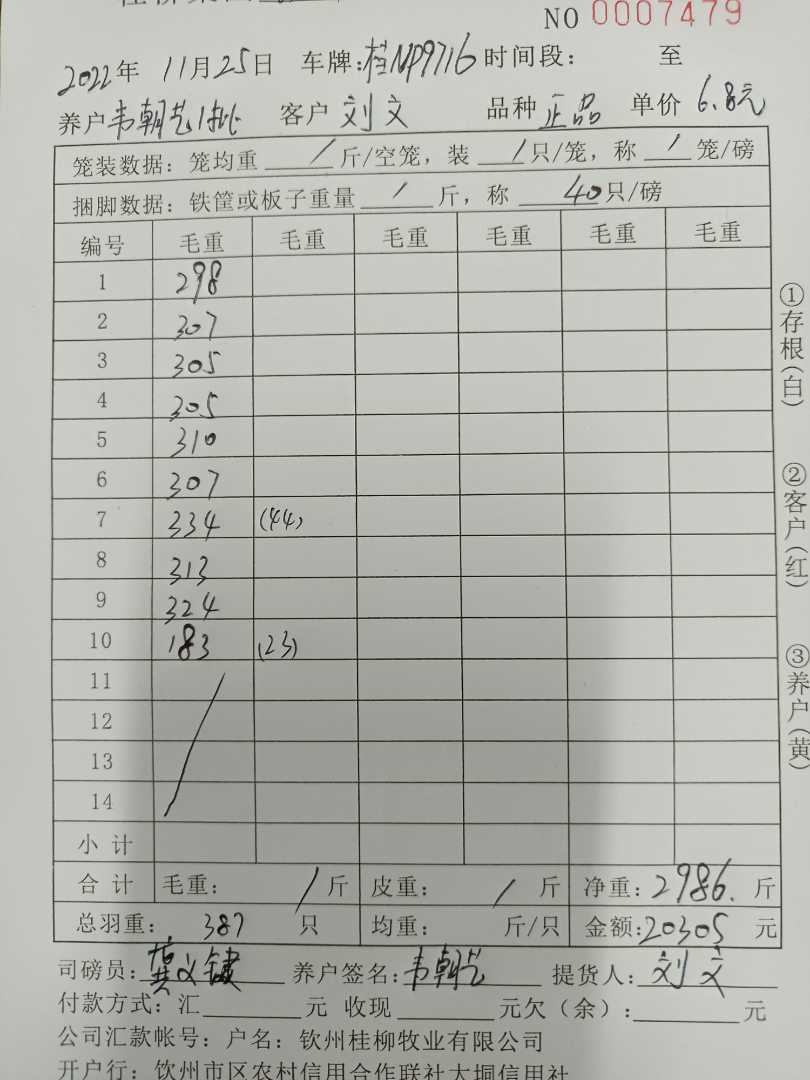 NO 0007479
2022年 11月25日 车牌:桂NP9716 时间段: 至
养户 韦朝艺1批 客户 刘文 品种 正品 单价 6.8元
笼装数据: 笼均重 / 斤/空笼, 装 / 只/笼, 称 / 笼/磅
捆脚数据: 铁筐或板子重量 / 斤, 称 40只/磅
编号 毛重 毛重 毛重 毛重 毛重 毛重
1 298
2 307
3 305
4 305
5 310
6 307
7 334 (44)
8 313
9 324
10 183 (23)
11
12
13
14
小计
合计 毛重: / 斤 皮重: / 斤 净重: 2986. 斤
总羽重: 387 只 均重: 斤/只 金额:20305 元
司磅员: 龚义键 养户签名: 韦朝艺 提货人: 刘文
付款方式: 汇 元 收现 元欠(余): 元
公司汇款帐号: 户名: 钦州桂柳牧业有限公司
开户行: 钦州市区农村信用合作联社大垌信用社
①存根(白)
②客户(红)
③养户(黄)